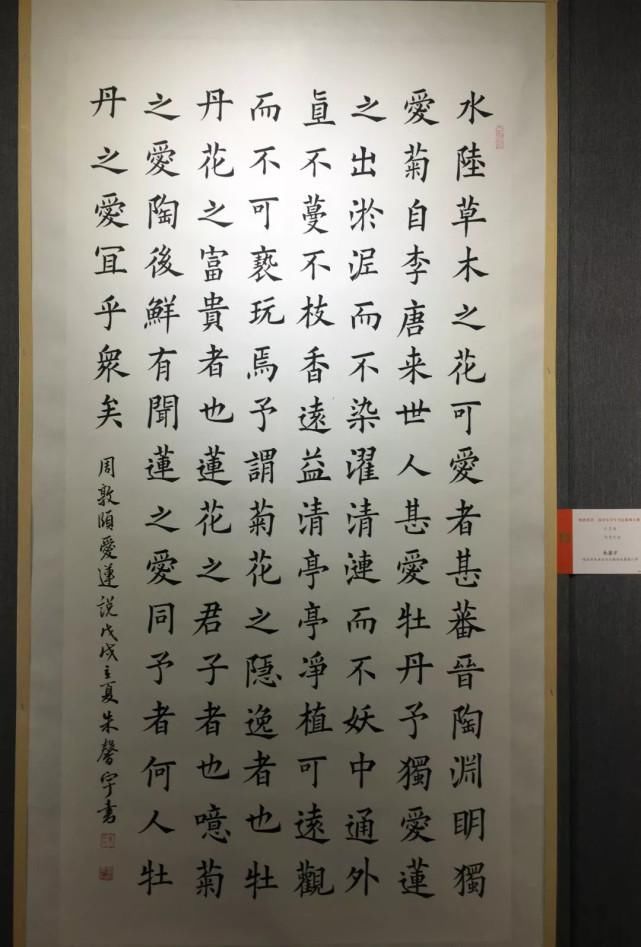 水陸草木之花可愛者甚蕃晉陶淵明獨
愛菊自李唐来世人甚愛牡丹予獨愛蓮
之出淤泥而不染濯清漣而不妖中通外
直不蔓不枝香遠益清亭亭凈植可遠觀
而不可褻玩焉予謂菊花之隱逸者也牡
丹花之富貴者也蓮花之君子者也噫菊
之愛陶後鮮有聞蓮之愛同予者何人牡
丹之愛宜乎衆矣
周敦頤愛蓮說戊戌立夏朱馨宇書